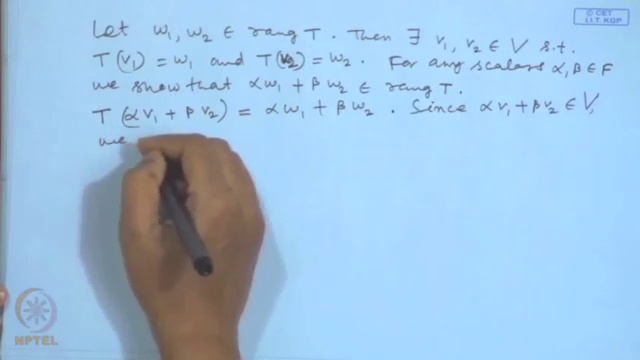 © CET
I.I.T. KGP
Let w₁, w₂ ∈ rang T. Then ∃ v₁, v₂ ∈ V s.t.
T(v₁) = w₁ and T(v₂) = w₂. For any scalars α, β ∈ F
we show that αw₁ + βw₂ ∈ rang T.
T(αv₁ + βv₂) = αw₁ + βw₂. Since αv₁ + βv₂ ∈ V,
we
NPTEL